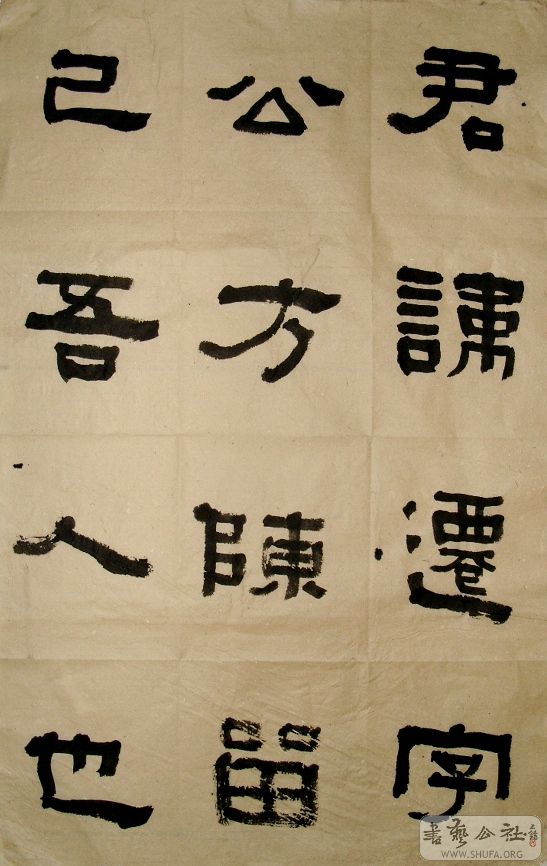 君諱遷字
公方陳留
己吾人也
書藝公社
WWW.SHUFA.ORG